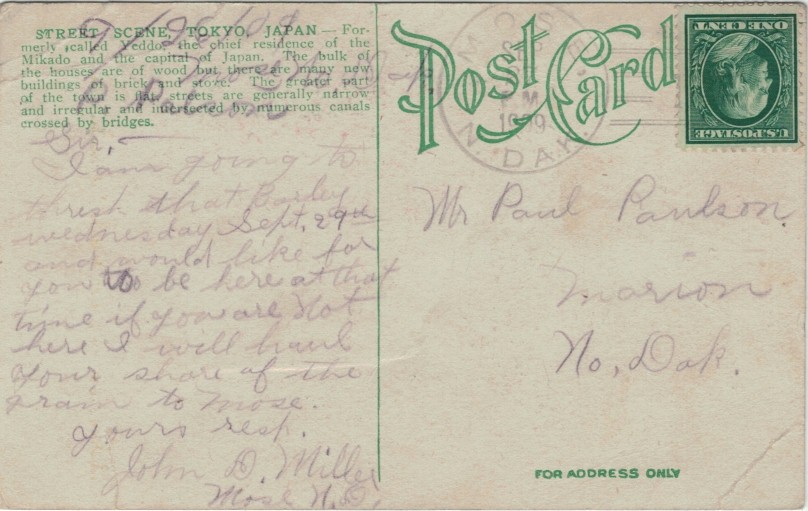 STREET SCENE, TOKYO, JAPAN.—For-
merly called Yeddo, the chief residence of the
Mikado and the capital of Japan. The bulk of
the houses are of wood but there are many new
buildings of brick and stove. The greater part
of the town is flat, streets are generally narrow
and irregular and intersected by numerous canals
crossed by bridges.
9/28/09
Dak.
Sir,—
I am going to
thresh that Barley
wednesday Sept, 29th
and would like for
you to be here at that
time if you are Not
here I will haul
your share of the
grain to mose.
yours resp.
John D. Miller
Mose N. D.
Post Card
MOSE
SEP
M
1909
N. DAK.
U.S. POSTAGE
ONE CENT
Mr Paul Paulson.
Marion
No, Dak.
FOR ADDRESS ONLY